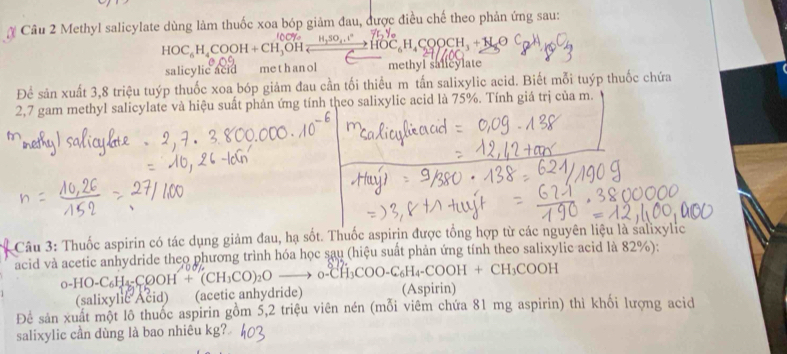 Câu 2 Methyl salicylate dùng làm thuốc xoa bóp giảm đau, được điều chế theo phản ứng sau:
100% 75%
HOC₆H₄COOH + CH₃OH ⇌ (H₂SO₄, t°) HOC₆H₄COOCH₃ + H₂O C₈H₈O₃
0,09 27/100
salicylic acid methanol methyl salicylate
Để sản xuất 3,8 triệu tuýp thuốc xoa bóp giảm đau cần tối thiểu m tấn salixylic acid. Biết mỗi tuýp thuốc chứa
2,7 gam methyl salicylate và hiệu suất phản ứng tính theo salixylic acid là 75%. Tính giá trị của m.
m methyl salicylate = 2,7 . 3.800.000 . 10⁻⁶
= 10,26 tấn
n = 10,26/152 = 27/400
m salicylic acid = 0,09 . 138
= 12,42 tấn
= 9/380 . 138 = 621/190 g
=> 3,8 tr tuýt = 621/190 . 3800000
= 12,400,000
Câu 3: Thuốc aspirin có tác dụng giảm đau, hạ sốt. Thuốc aspirin được tổng hợp từ các nguyên liệu là salixylic
acid và acetic anhydride theo phương trình hóa học sau (hiệu suất phản ứng tính theo salixylic acid là 82%):
100% 82%
o-HO-C₆H₄-COOH + (CH₃CO)₂O ⟶ o-CH₃COO-C₆H₄-COOH + CH₃COOH
(salixylic Acid) (acetic anhydride) (Aspirin)
Để sản xuất một lô thuốc aspirin gồm 5,2 triệu viên nén (mỗi viêm chứa 81 mg aspirin) thì khối lượng acid
salixylic cần dùng là bao nhiêu kg? 403